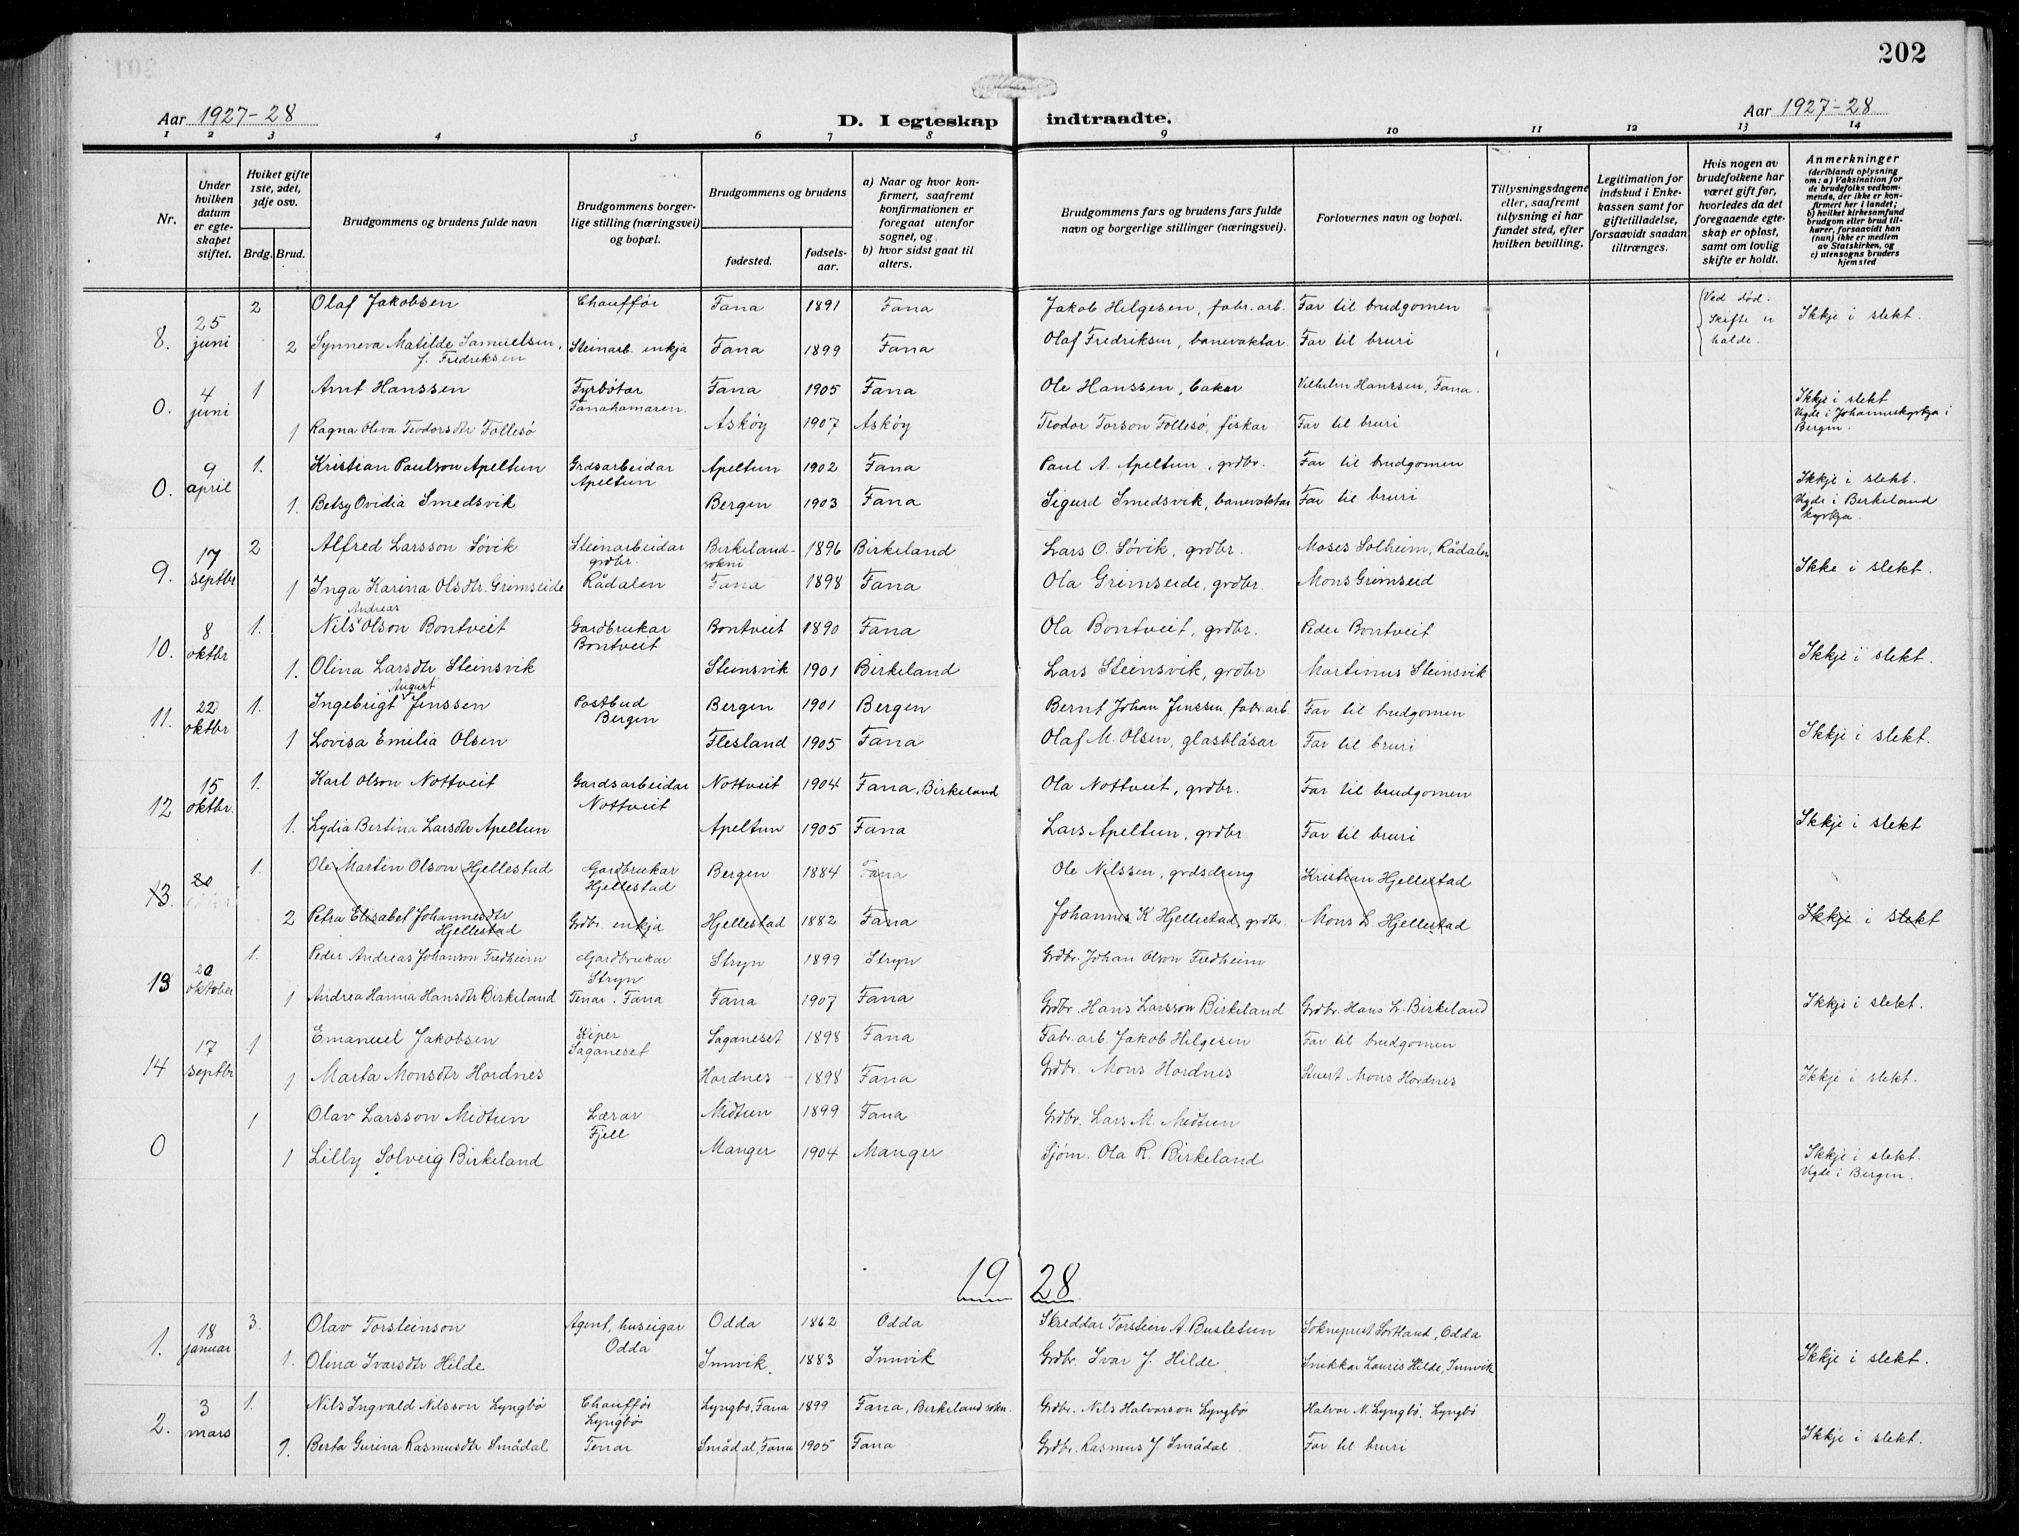 202
Aar 1927-28
D. I egteskap indtraadte.
Aar 1927-28
1 2 3 4 5 6 7 8 9 10 11 12 13 14
Nr.
Under hvilken datum er egteskapet stiftet.
Hviket gifte 1ste, 2det, 3dje osv.
Brdg. Brud.
Brudgommens og brudens fulde navn
Brudgommens borgerlige stilling (næringsvei) og bopæl.
Brudgommens og brudens
fødested.
fødselsaar.
a) Naar og hvor konfirmert, saafremt konfirmationen er foregaat utenfor sognet, og
b) hvor sidst gaat til alters.
Brudgommens fars og brudens fars fulde navn og borgerlige stillinger (næringsvei).
Forlovernes navn og bopæl.
Tillysningsdagene eller, saafremt tillysning ei har fundet sted, efter hvilken bevilling.
Legitimation for indskud i Enkekassen samt for giftetilladelse, forsaavidt saadan tiltrænges.
Hvis nogen av brudefolkene har været gift før, hvorledes da det foregaaende egteskap er opløst, samt om lovlig skifte er holdt.
Anmerkninger (deriblandt oplysning om: a) Vaksination for de brudefolks vedkommende, der ikke er konfirmert her i landet; b) hvilket kirkesamfund brudgom eller brud tilhører, forsaavidt han (nun) ikke er medlem av Statskirken, og c) utensogns bruders hjemsted
8. 25 juni 2 Olaf Jakobsen Chauffør Fana 1891 Fana Jakob Helgesen, fabr. arb. Far til brudgomen Ved død. Skifte er halde. Ikkje i slekt.
2 Synneva Matilde Samuelsen, f. Fredriksen Steinarb. enkja Fana 1899 Fana Olaf Fredriksen, banevaktar. Far til bruri
0. 4 juni 1 Arnt Hanssen Fyrbøtar Fanahamaren. Fana 1905 Fana Ole Hanssen, bakar Vilhelm Hanssen, Fana. Ikkje i slekt Vigde i Johanneskyrkja i Bergen.
1 Ragna Oliva Teodorsdtr Follesø Askøy 1907 Askøy Teodor Torson Follesø, fiskar Far til bruri
0. 9 april 1. Kristian Paulson Apeltun Grdsarbeidar Apeltun Apeltun 1902 Fana Paul A. Apeltun, grdbr. Far til brudgomen Ikkje i slekt. Vigde i Birkeland kyrkja.
1. Betsy Ovidia Smedsvik Bergen 1903 Fana Sigurd Smedsvik, banevaktar Far til bruri
9. 17 septbr 2 Alfred Larsson Søvik Steinarbeidar grdbr. Rådalen Birkelandsokni 1896 Birkeland Lars O. Søvik, grdbr. Moses Solheim, Rådalen Ikke i slekt.
1 Inga Karina Olsdtr. Grimseide Fana 1898 Fana Ola Grimseide, grdbr. Mons Grimseid
10. 8 oktbr 1. Nils Andreas Olson Bontveit Gardbrukar Bontveit Bontveit 1890 Fana Ola Bontveit, grdbr. Peder Bontveit Ikkje i slekt.
1. Olina Larsdtr Steinsvik Steinsvik 1901 Birkeland Lars Steinsvik, grdbr Martinus Steinsvik
11. 22 oktbr 1. Ingebrigt August Jenssen Postbud Bergen Bergen 1901 Bergen Bernt Johan Jenssen, fabr. arb. Far til brudgomen
1 Lovisa Emilia Olsen Flesland 1905 Fana Olaf M. Olsen, glasblåsar Far til bruri Ikkje i slekt.
12 15 oktbr. 1. Karl Olson Nottveit Gardsarbeidar Nottveit Nottveit 1904 Fana, Birkeland Ola Nottveit, grdbr. Far til brudgomen
1. Lydia Bertina Larsdtr Apeltun Apeltun 1905 Fana Lars Apeltun, grdbr Far til bruri Ikkje i slekt
13. 20 1. Ole Martin Olson Hjellestad Gardbrukar Hjellestad Bergen 1884 Fana Ole Nilssen, grdsdreng Kristian Hjellestad
2 Petra Elisabet Johannesdtr Hjellestad Grdbr. enkja Hjellestad 1882 Fana Johannes K Hjellestad, grdbr. Mons L Hjellestad Ikkje i slekt
13 20 oktober 1. Peder Andreas Johanson Fredheim Gardbrukar Stryn Stryn 1899 Stryn Grdbr. Johan Olson Fredheim
1 Andrea Hanna Hansdtr Birkeland Tenar. Fana Fana 1907 Fana Grdbr. Hans Larsson Birkeland Grdbr. Hans L. Birkeland Ikkje i slekt.
14 17 septbr 1 Emanuel Jakobsen Kiper Saganeset Saganeset 1898 Fana Fabr. arb. Jakob Helgesen Far til brudgomen
1 Marta Monsdtr Hordnes Hordnes 1898 Fana Grdbr. Mons Hordnes Mons Hordnes Ikkje i slekt.
0 1 Olav Larsson Midtun Lærar Fjell Midtun 1899 Fana Grdbr. Lars M. Midtun
1 Lilly Solveig Birkeland Manger 1904 Manger Sjøm. Ola R. Birkeland Ikkje i slekt. Vigde i Bergen.
19 28
1. 18 januar 3. Olav Torsteinson Agent, huseigar Odda Odda 1862 Odda Skreddar Torstein A. Busletun Sokneprest Sortland, Odda
1. Olina Ivarsdtr Hilde Innvik 1883 Innvik Grdbr. Ivar J. Hilde Snikkar Lauris Hilde, Innvik Ikkje i slekt.
2. 3 mars 1. Nils Ingvald Nilsson Lyngbø Chauffør Lyngbø Lyngbø, Fana 1899 Fana, Birkeland sokn. Grdbr. Nils Halvorson Lyngbø Halvor N. Lyngbø, Lyngbø
1. Berta Gurina Rasmusdtr Smådal Tenar Smådal, Fana 1905 Fana Grdbr. Rasmus J Smådal Far til bruri Ikkje i slekt.